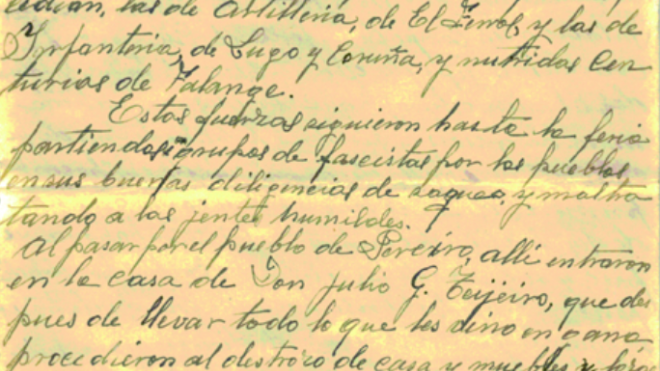 las de Artillería, de El Ferrol, y las de
Infantería, de Lugo y Coruña, y nutridas Cen
turias de Falange.
Estas fuerzas siguieron hasta la feria
partiendo grupos de fascistas por los pueblos,
en sus buenas diligencias de saqueo, y maltra
tando a las jentes humildes. 
Al pasar por el pueblo de Pereiro, allí entraron
en la casa de Don Julio G. Teijeiro, que des
pues de llevar todo lo que les dino en gana,
procedieron al destrozo de casa y muebles y